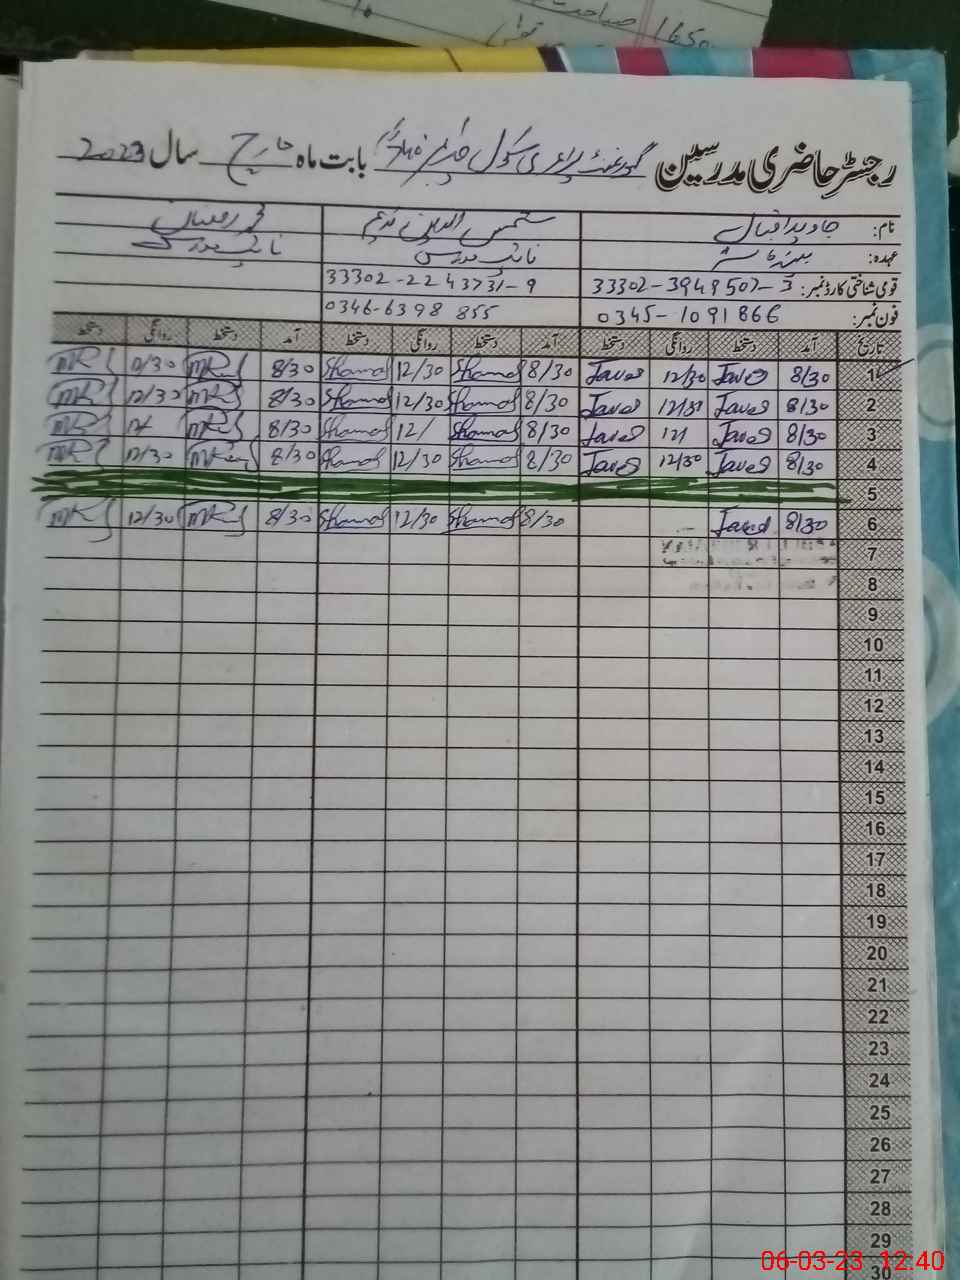 صباحت 1650
رجسٹر حاضری مدرسین گورنمنٹ پرائمری سکول بابت ماہ مارچ سال 2023
نام: جاوید اقبال شمس الدین ندیم محمد رمضان
عہدہ: ہیڈ ماسٹر نائب مدرس نائب مدرس
قومی شناختی کارڈ نمبر: 33302-3949507-3 33302-2243731-9
فون نمبر: 0345-1091866 0346-6398855
تاریخ آمد دستخط روانگی دستخط آمد دستخط روانگی دستخط آمد دستخط روانگی دستخط
1 8/30 Javed 12/30 Javed 8/30 Shamas 12/30 Shamas 8/30 MR 12/30 MR
2 8/30 Javed 12/30 Javed 8/30 Shamas 12/30 Shamas 8/30 MR 12/30 MR
3 8/30 Javed 12/ Javed 8/30 Shamas 12/ Shamas 8/30 MR 12/ MR
4 8/30 Javed 12/30 Javed 8/30 Shamas 12/30 Shamas 8/30 MR 12/30 MR
5
6 8/30 Javed 8/30 Shamas 12/30 Shamas 8/30 MR 12/30 MR
7
8
9
10
11
12
13
14
15
16
17
18
19
20
21
22
23
24
25
26
27
28
29
30
06-03-23 12:40